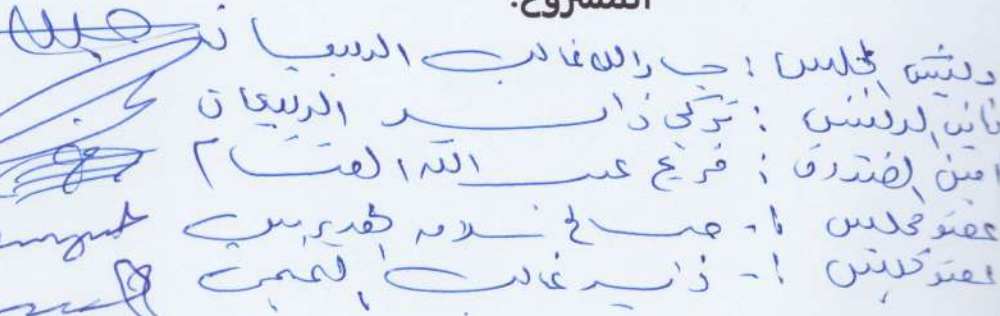 المشروع.
رئيس المجلس : جار الله غالب الربيعان
نائب الرئيس : تركي زايد الربيعان
امين الصندوق : فريح عبد الله القسام
عضو مجلس ١- صالح سلامه
عضو مجلس ١- زايد غالب